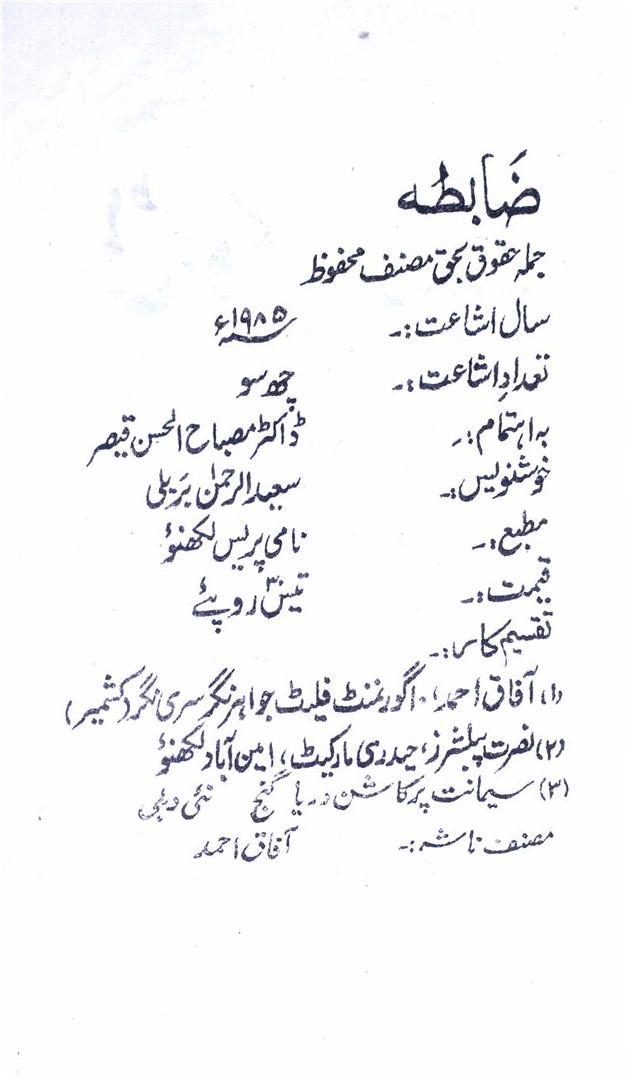 ضَابطہ
جملہ حقوق بحق مصنف محفوظ
سال اشاعت:۔ ۱۹۸۵ء
تعدادِ اشاعت:۔ چھ سو
بہ اہتمام:۔ ڈاکٹر مصباح الحسن قیصر
خوشنویس:۔ سعید الرحمٰن بَریلی
مطبع:۔ نامی پریس لکھنؤ
قیمت:۔ تیس ۳۰ روپئے
تقسیم کار:۔
(۱) آفاق احمد، ۱۰ گورنمنٹ فلیٹ جواہر نگر سری نگر (کشمیر)
(۲) نصرت پبلشرز، حیدری مارکیٹ، امین آباد لکھنؤ
(۳) سیمانت پرکاشن دریا گنج نئی دہلی
مصنف ناشر:۔ آفاق احمد